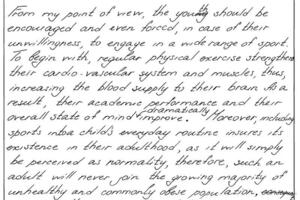 From my point of view, the youth should be
encouraged and even forced, in case of their
unwillingness, to engage in a wide range of sport.
To begin with, regular physical exercise strengthens
their cardio-vascular system and muscles, thus,
increasing the blood supply to their brain. As a
result, their academic performance and their
overall state of mind dramatically improve. Moreover, including
sports into a child's everyday routine insures its
existence in their adulthood, as it will simply
be perceived as normality, therefore, such an
adult will never join the growing majority of
unhealthy and commonly obese population,